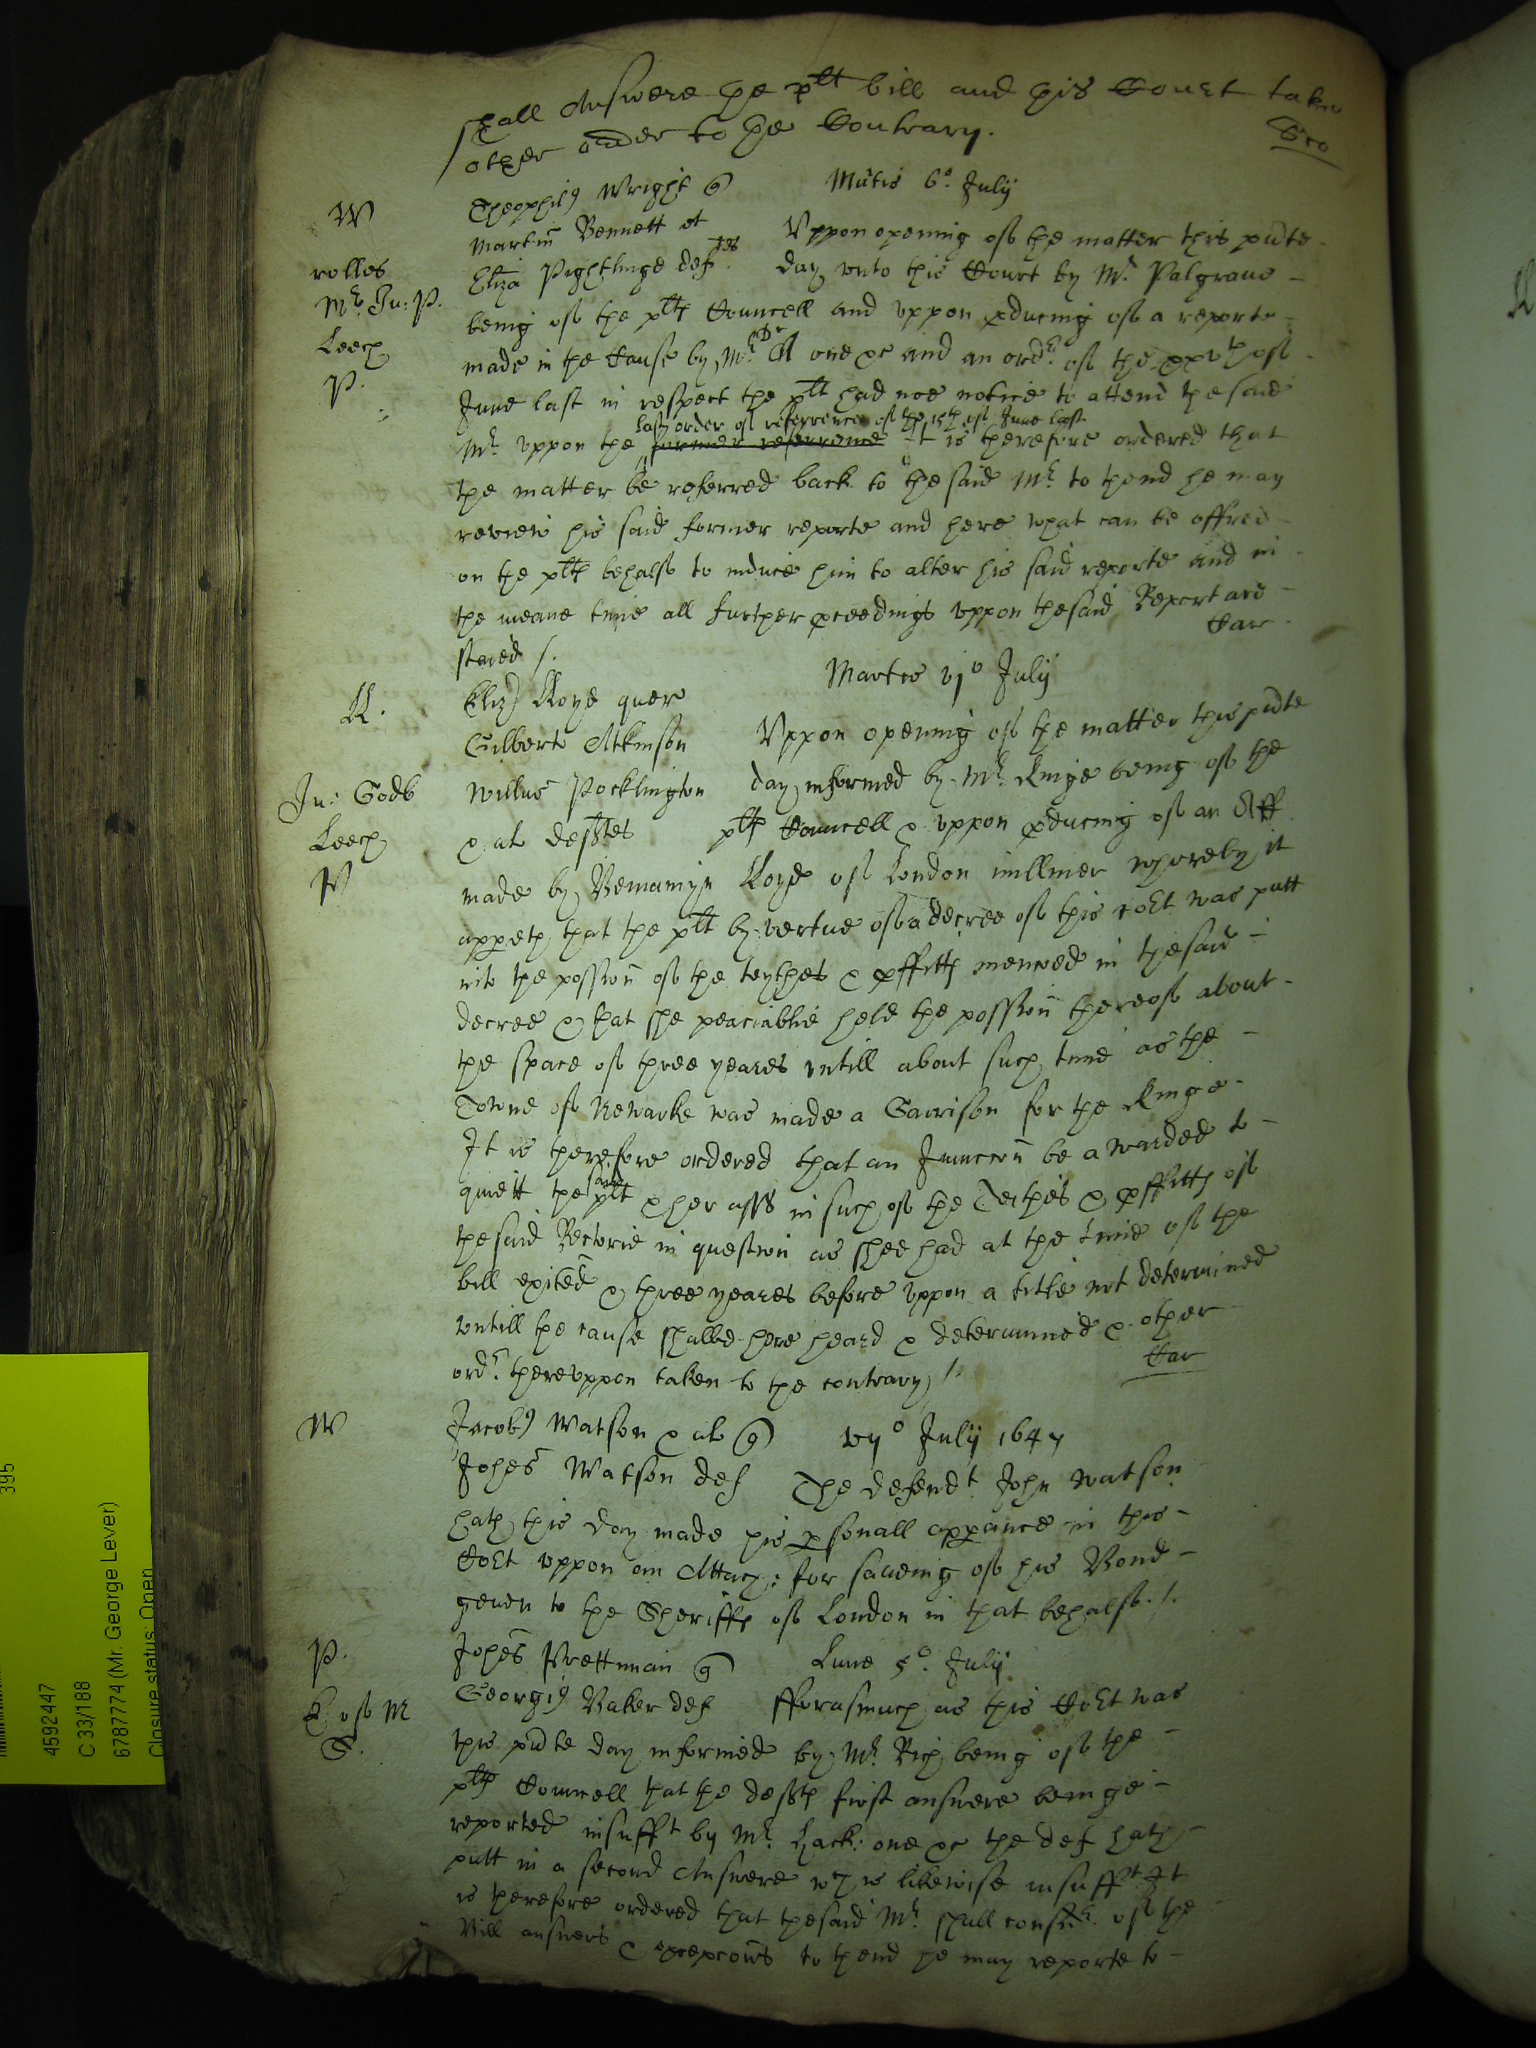 shall Answere the plt bill and this Court take
other order to the Contrary.
Geo
W
Theophilus Wright q Martis 6o July
Martin Bennett et Vppon opening of the matter this pnte
rolles
Eliza Pightlinge deftes day vnto this Court by Mr Palgraue
Mr Jn: P.
being of the plts Councell and vppon pducing of a reporte
Leech
made in the Cause by Mr Dr one &c and an ordr of the xxvth of
P.
June last in respect the plt had noe notice to attend the said
last order of referrence of the 15th of June last
Mr vppon the former referrence it is therefore ordered that
the matter be referred back to the said Mr to thend he may
review his said former reporte and here what can be offred
on the plts behalfe to induce him to alter his said reporte and in
the meane time all further pceedings vppon the said Report are
staied /. Car
Martis vjo July
R.
Eliz Lloyd quer
Gilberte Atkinson Vppon opening of the matter this pnte
Jn: Godb
Willus Pocklington day informed by Mr Kinge being of the
Leech
& al deftes plts Councell & vppon pducing of an Aff
P
made by Beniamyn Lloyd of London milliner whereby it
appeth that the plt by vertue of a decree of this cort was putt
into the possion of the teythes & pffitts menced in the said
decree & that she peaciablie held the possion thereof about
the space of three yeares vntill about such time as the
Towne of Newarke was made a Garrison for the Kinge
It is therefore ordered that an Iniuccon be awarded to
quiett the said plt & her asss in such of the Teithes & pffitts of
the said Rectorie in question as shee had at the time of the
bill exited & three yeares before vppon a title not determined
vntill the cause shalbe here heard & determined & other
ordr therevppon taken to the contrary /. Car
W
Jacobus Watson & al q vijo July 1647
Johes Watson def The defendt John Watson
hath this day made his psonall appance in this
Cort vppon an Attach: for saueing of his Bond
geuen to the Sheriffs of London in that behalfe ./.
P.
Johes Prettiman q Lune 5o July
Georgius Baker def fforasmuch as this Cort was
E of M
S.
this pnte day informed by Mr Rich being of the
plts Councell that the defts first answere beinge
reported insufft by Mr Hack: one &c the def hath
putt in a second Answere wch is likewise insufft It
is therefore ordered that the said Mr shall consider of the
Bill answers & excepcons to thend he may reporte to
395
4592447
C 33/188
6787774 (Mr. George Lever)
Closure status: Open